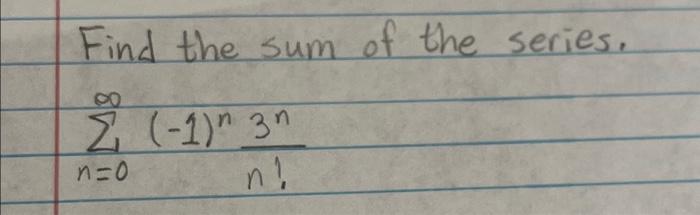 Find the sum of the series.
∞
∑ (-1)ⁿ 3ⁿ
n=0 n!